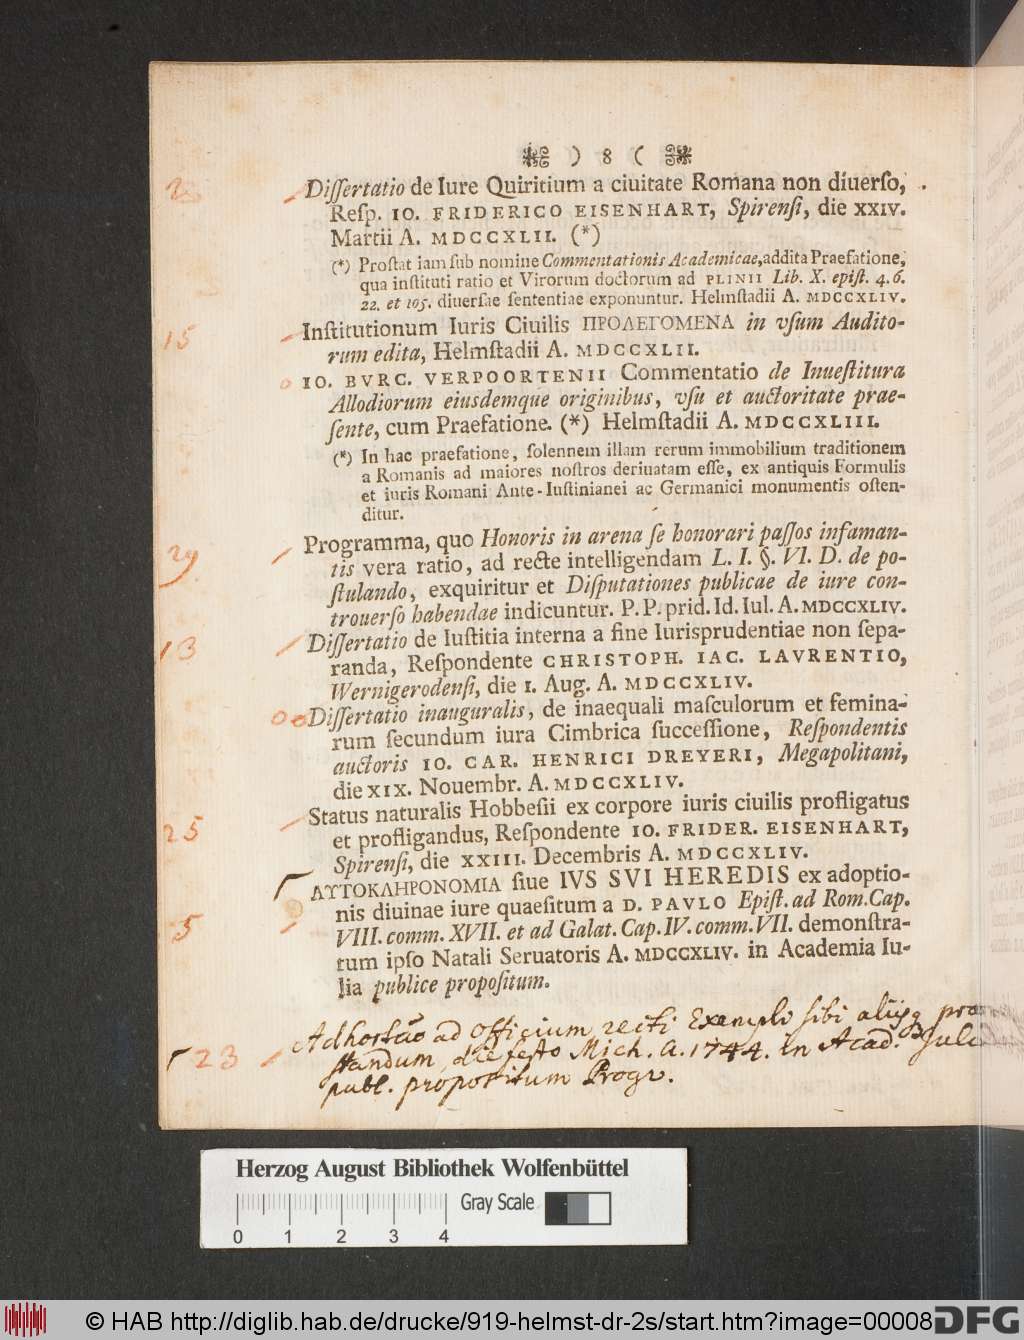 ) 8 (
23 Diſſertatio de Iure Quiritium a ciuitate Romana non diuerſo,
Reſp. IO. FRIDERICO EISENHART, Spirenſi, die XXIV.
Martii A. MDCCXLII. (*)
(*) Proſtat iam ſub nomine Commentationis Academicae, addita Praefatione,
qua inſtituti ratio et Virorum doctorum ad PLINII Lib. X. epiſt. 4. 6.
22. et 105. diuerſae ſententiae exponuntur. Helmſtadii A. MDCCXLIV.
15 Inſtitutionum Iuris Ciuilis ΠΡΟΛΕΓΟΜΕΝΑ in vſum Audito-
rum edita, Helmſtadii A. MDCCXLII.
IO. BVRC. VERPOORTENII Commentatio de Inueſtitura
Allodiorum eiusdemque originibus, vſu et auctoritate prae-
ſente, cum Praefatione. (*) Helmſtadii A. MDCCXLIII.
(*) In hac praefatione, ſolennem illam rerum immobilium traditionem
a Romanis ad maiores noſtros deriuatam eſſe, ex antiquis Formulis
et iuris Romani Ante-Iuſtinianei ac Germanici monumentis oſten-
ditur.
29 Programma, quo Honoris in arena ſe honorari paſſos infaman-
tis vera ratio, ad recte intelligendam L. I. §. VI. D. de po-
ſtulando, exquiritur et Diſputationes publicae de iure con-
trouerſo habendae indicuntur. P. P. prid. Id. Iul. A. MDCCXLIV.
13 Diſſertatio de Iuſtitia interna a fine Iurisprudentiae non ſepa-
randa, Reſpondente CHRISTOPH. IAC. LAVRENTIO,
Wernigerodenſi, die 1. Aug. A. MDCCXLIV.
Diſſertatio inauguralis, de inaequali maſculorum et femina-
rum ſecundum iura Cimbrica ſucceſſione, Reſpondentis
auctoris IO. CAR. HENRICI DREYERI, Megapolitani,
die XIX. Nouembr. A. MDCCXLIV.
25 Status naturalis Hobbeſii ex corpore iuris ciuilis profligatus
et profligandus, Reſpondente IO. FRIDER. EISENHART,
Spirenſi, die XXIII. Decembris A. MDCCXLIV.
ΑΥΤΟΚΛΗΡΟΝΟΜΙΑ ſiue IVS SVI HEREDIS ex adoptio-
nis diuinae iure quaeſitum a D. PAVLO Epiſt. ad Rom. Cap.
5 VIII. comm. XVII. et ad Galat. Cap. IV. comm. VII. demonſtra-
tum ipſo Natali Seruatoris A. MDCCXLIV. in Academia Iu-
lia publice propoſitum.
Adhortão ad officium recti Exempli ſibi aliisq
23 ſtandum, die feſto Mich. A. 1744. in Acad.
publ. propoſitum Progr.
Herzog August Bibliothek Wolfenbüttel
Gray Scale
0 1 2 3 4
© HAB http://diglib.hab.de/drucke/919-helmst-dr-2s/start.htm?image=00008 DFG